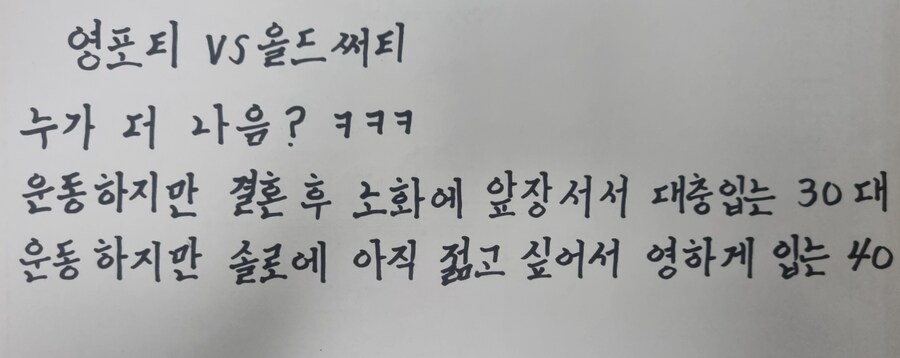 영포티 VS 올드써티
누가 더 나음? ㅋㅋㅋ
운동하지만 결혼 후 노화에 앞장서서 대충입는 30대
운동 하지만 솔로에 아직 젊고 싶어서 영하게 입는 40